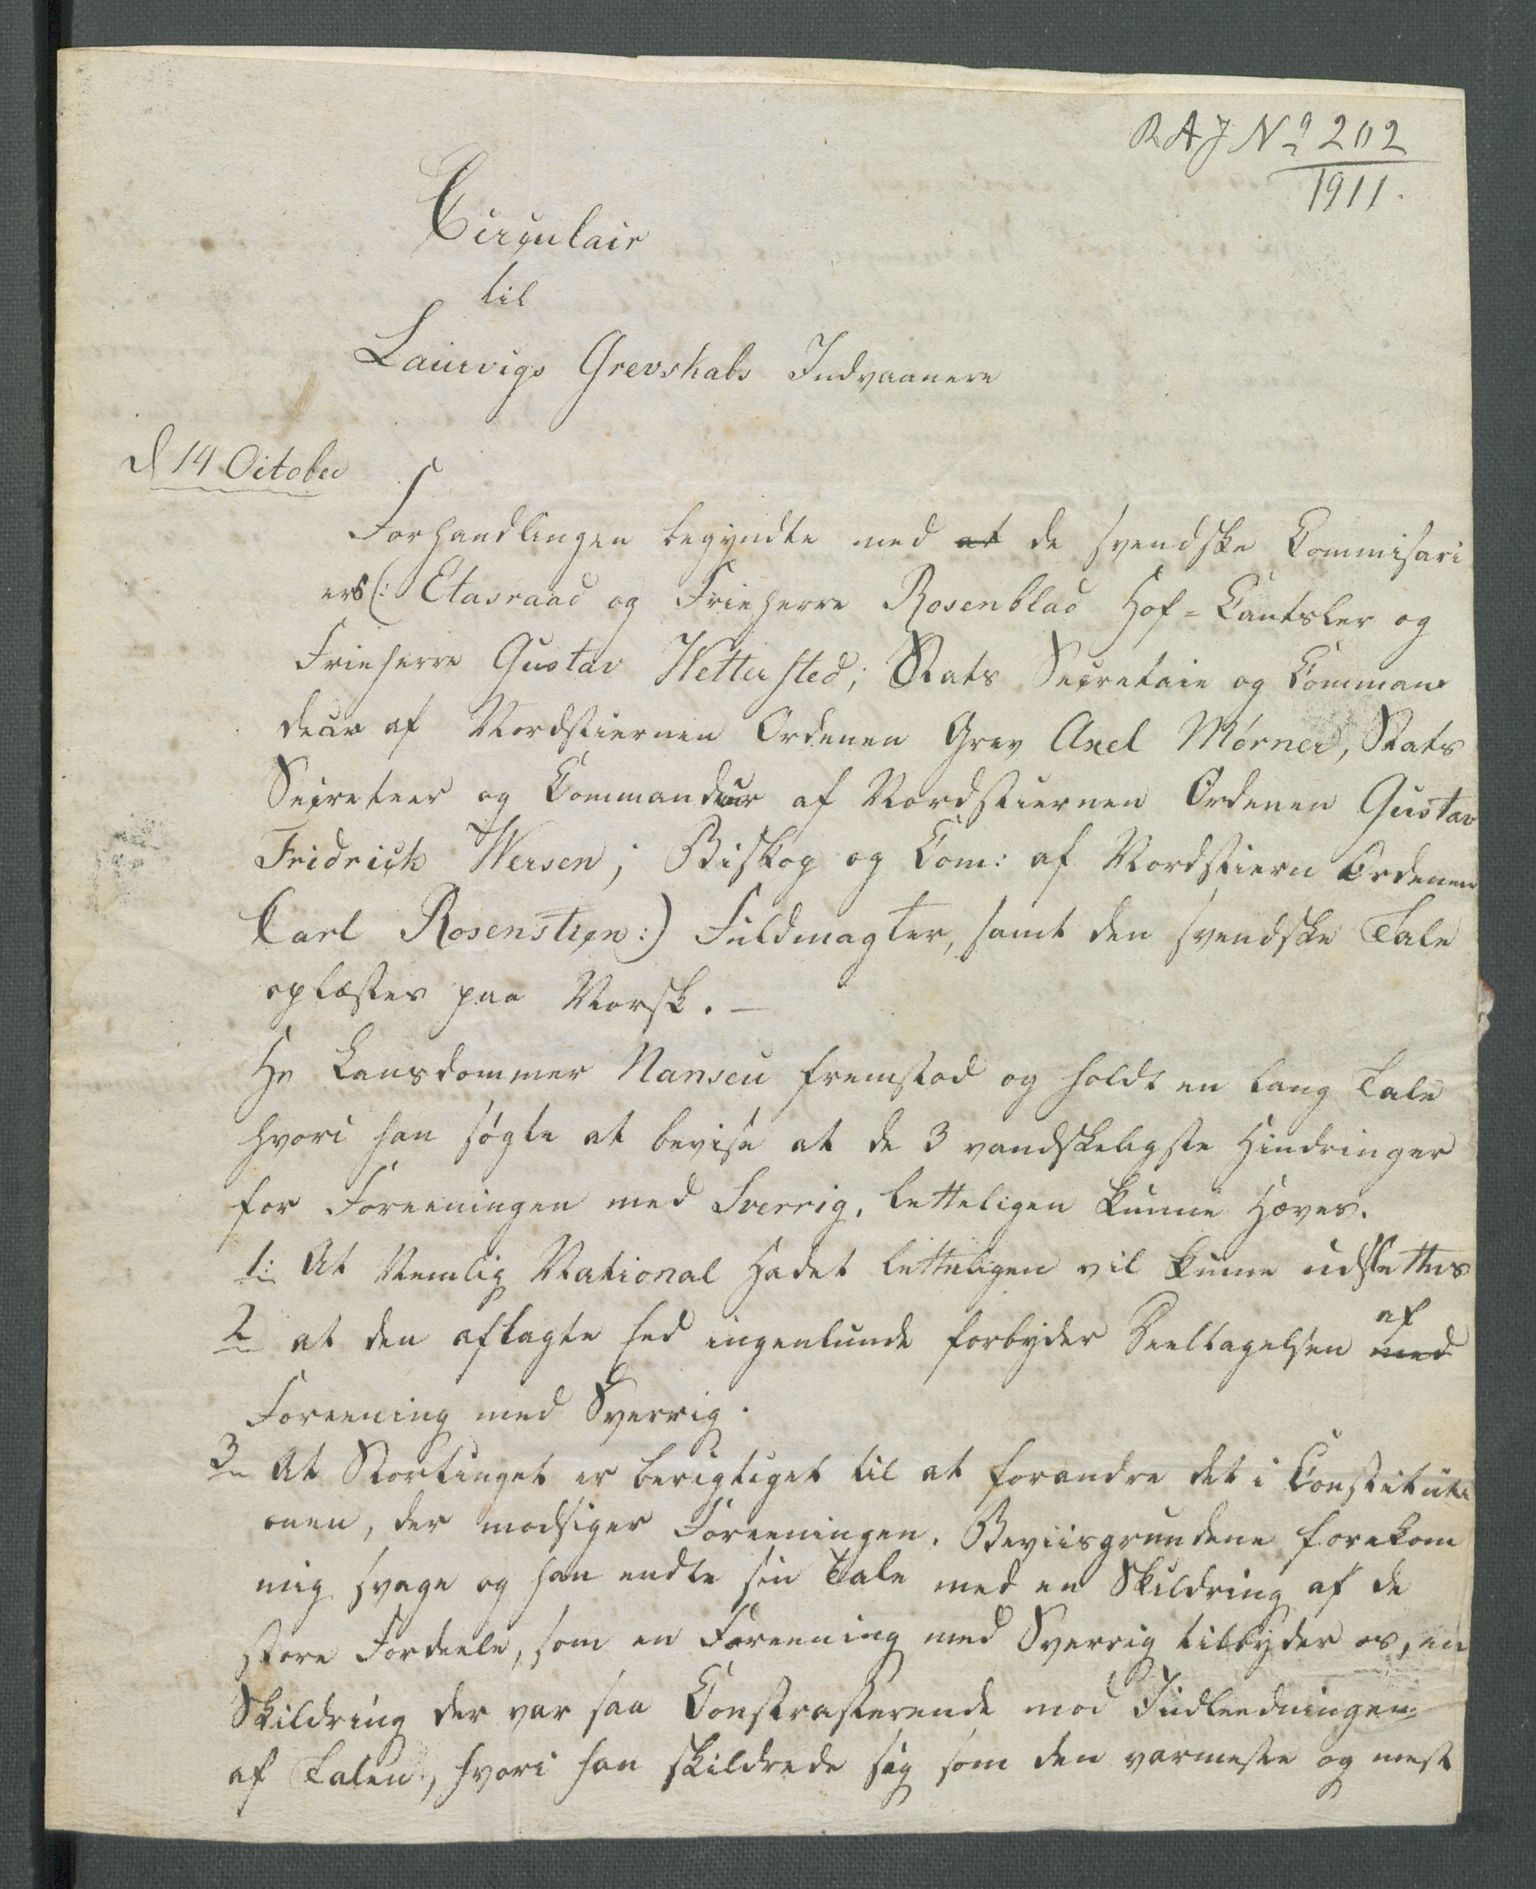 R A J Nº 202
1911.
Circulair
til
Laurvigs Grevskabs Indvaanere
d 14 October
Forhandlingen begyndte med at de svendske Commisari
ers (: Etasraad og Frieherre Rosenblad Hof-Cantsler og
Frieherre Gustav Wettersted; Stats Secretair og Comman
deur af Nordstiernen Ordenen Grev Axel Mørner, Stats
Secreteer og Commandeur af Nordstiernen Ordenen Gustav
Fridrich Wersen; Biskop og Com: af Nordstiern Ordenen
Carl Rosenstein :) Fuldmagter, samt den svendske Tale
oplæstes paa Norsk. —
Hr Lansdommer Nansen fremstod og holdt en lang Tale
hvori han søgte at bevise at de 3 vandskeligste Hindringer
for Foreeningen med Sverrig, letteligen kunne Hæves.
1: At Nemlig National Hadet letteligen vil kunne udslettes
2 at den aflagte Eed ingenlunde forbyder Deeltagelsen med af
Foreening med Sverrig.
3 At Stortinget er berigtiget til at forandre det i Constituti
onen, der modsiger Foreeningen. Beviisgrundene forekom
mig svage og han endte sin Tale med en Skildring af de
store Fordeele, som en Foreening med Sverrig tilbyder os, en
Skildring der var saa Constrasterende mod Indleedningen
af Talen, hvori han skildrede sig som den varmeste og mest